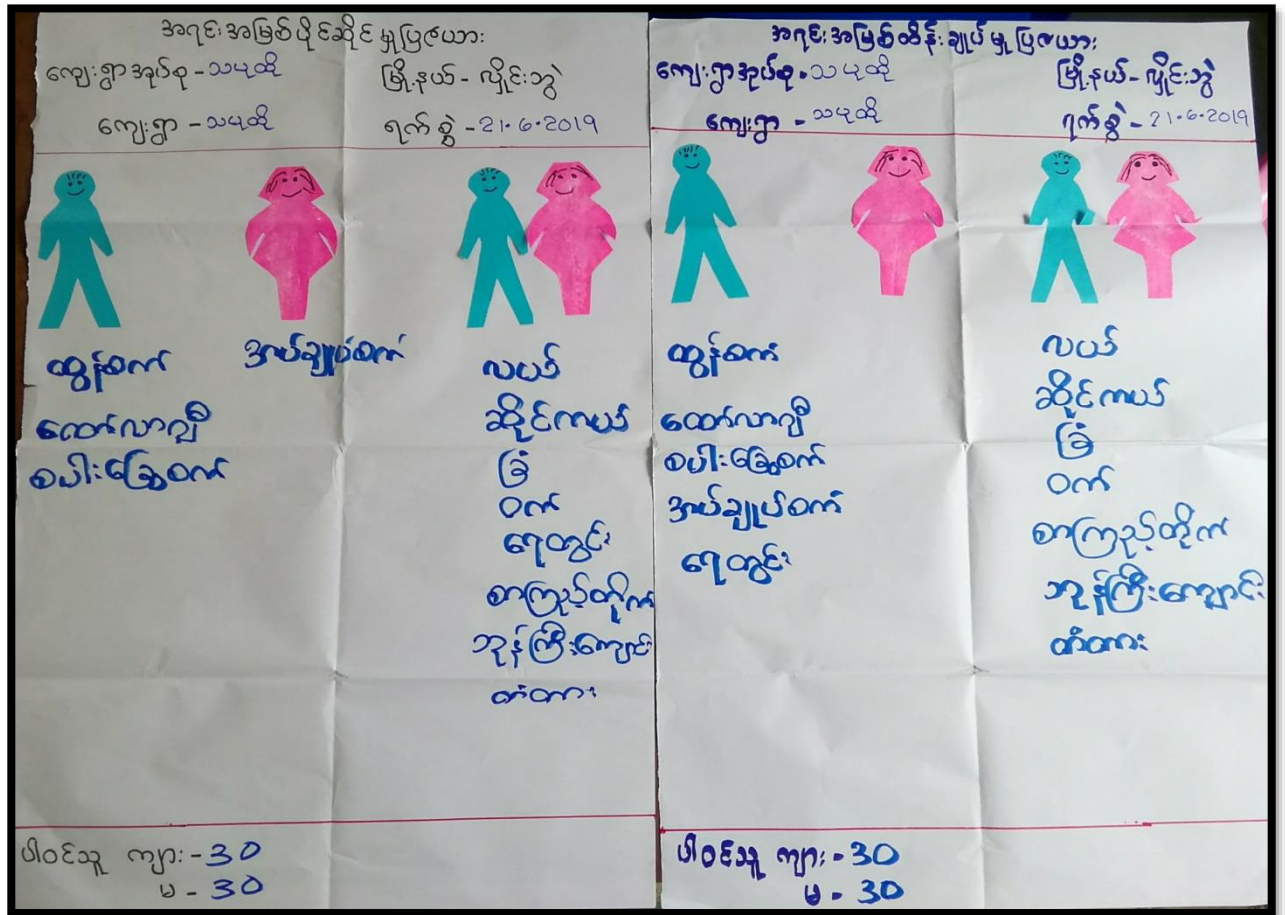 အရင်းအမြစ်ပိုင်ဆိုင်မှုပြဇယား
ကျေးရွာအုပ်စု - သပုထို
မြို့နယ် - လှိုင်းဘွဲ
ကျေးရွာ - သပုထို
ရက်စွဲ - 21.6.2019
ထွန်စက်
ထော်လာဂျီ
စပါးခြွေစက်
အပ်ချုပ်စက်
လယ်
ဆိုင်ကယ်
ခြံ
ဝက်
ရေတွင်း
စာကြည့်တိုက်
ဘုန်ကြီးကျောင်း
တံတား
ပါဝင်သူ ကျား - 30
မ - 30
အရင်းအမြစ်ထိန်းချုပ်မှုပြဇယား
ကျေးရွာအုပ်စု - သပုထို
မြို့နယ် - လှိုင်းဘွဲ
ကျေးရွာ - သပုထို
ရက်စွဲ - 21.6.2019
ထွန်စက်
ထော်လာဂျီ
စပါးခြွေစက်
အပ်ချုပ်စက်
ရေတွင်း
လယ်
ဆိုင်ကယ်
ခြံ
ဝက်
စာကြည့်တိုက်
ဘုန်ကြီးကျောင်း
တံတား
ပါဝင်သူ ကျား - 30
မ - 30